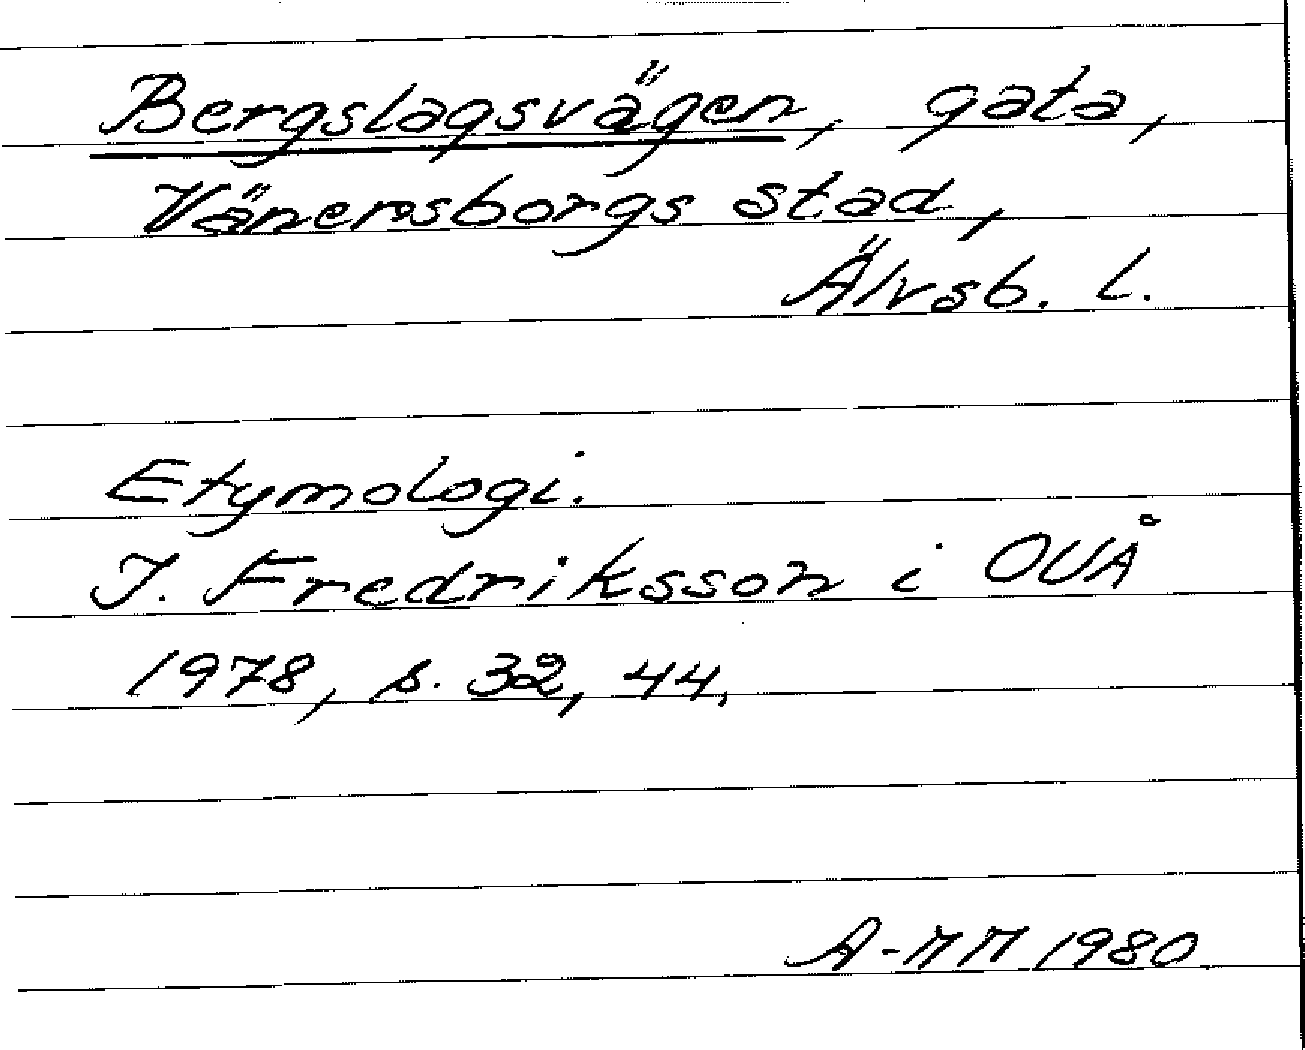 Bergslagsvägen, gata,
Vänersborgs stad,
Älvsb. l.
Etymologi.
I. Fredriksson i OUÅ
1978, s. 32, 44.
A-MM 1980